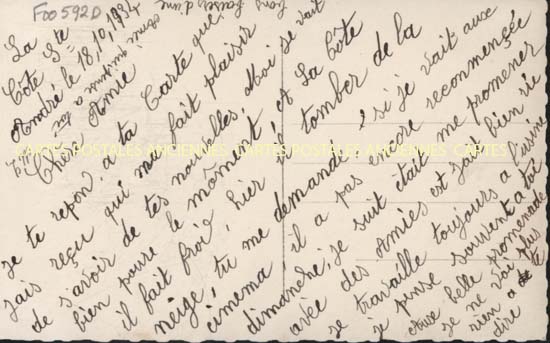 F00592D
La
Côte Ste
André le 18.10.1934
Chère Amie
je te repon, a ta Carte que,
jais reçu qui ma fait plaisir
de s'avoir de tes nouvelles, Moi je vait
bien poure le môment, et La Côte
il fait froid, hier tomber de la
neige, tu me demande, si je vait aux
cinema il a pas encore recommencée
dimanche, je suit était me promener
avèc des Amies est jait bien rie
je travaille toujours a l'usine
je pense souvent a toi
Aux belle promenade
je ne voi plus
rien a te
dire
bons baisers d'une
amie qui pense a toi
CARTES POSTALES ANCIENNES CARTES POSTALES ANCIENNES CARTES